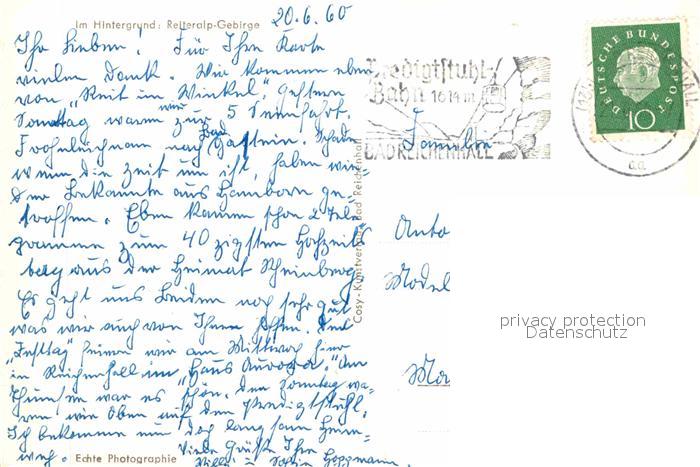 Im Hintergrund: Reiteralp-Gebirge
20.6.60
Ihr Lieben! Für Ihre Karte
vielen Dank. Wir kommen eben
von "Reit im Winkel" gestern
Sonntag waren wir zur 5 Seenfahrt.
nach Bad Gastein. Schade
wenn die Zeit um ist, haben wie-
der Bekannte aus Hamborn ge-
troffen. Eben kamen schon 2 Tele-
gramme zum 40 zigsten Hochzeits
tag aus der Heimat Rheinberg
Es geht uns beiden noch sehr gut
was wir auch von Ihnen hoffen. Den
"Festtag" feiern wir am Mittwoch hier
in Reichenhall im "Haus Aurora". Am
war es schön, den Sonntag wa-
ren wir oben auf dem Predigtstuhl.
Ich bekomme nun doch langsam Heim-
weh. Viele Grüße Ihre
Willi u.
Echte Photographie
Cosy-Kunstverlag, Bad Reichenhall
Predigtstuhl-
Bahn 1614 m
BAD REICHENHALL
DEUTSCHE BUNDESPOST
10
Familie
Auto
Model
Ma
privacy protection
Datenschutz